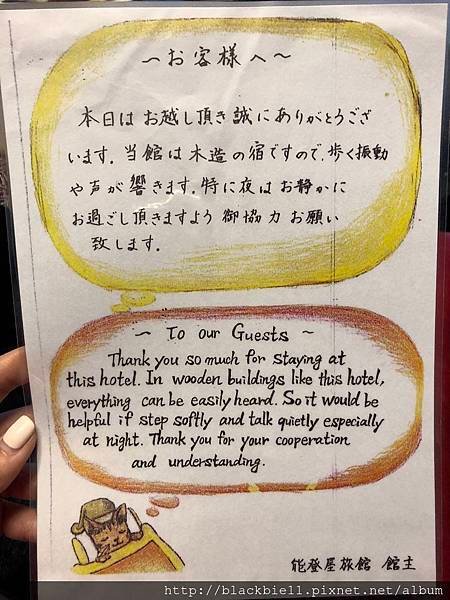 ～お客様へ～
本日は お越し頂き 誠に ありがとうござ
います. 当館は 木造の 宿ですので, 歩く振動
や声が 響きます. 特に 夜は お静かに
お過ごし頂きますよう 御協力 お願い
致します.
～ To our Guests ～
Thank you so much for staying at
this hotel. In wooden buildings like this hotel,
everything can be easily heard. So it would be
helpful if step softly and talk quietly especially
at night. Thank you for your cooperation
and understanding.
能登屋旅館 館主
http://blackbie11.pixnet.net/album